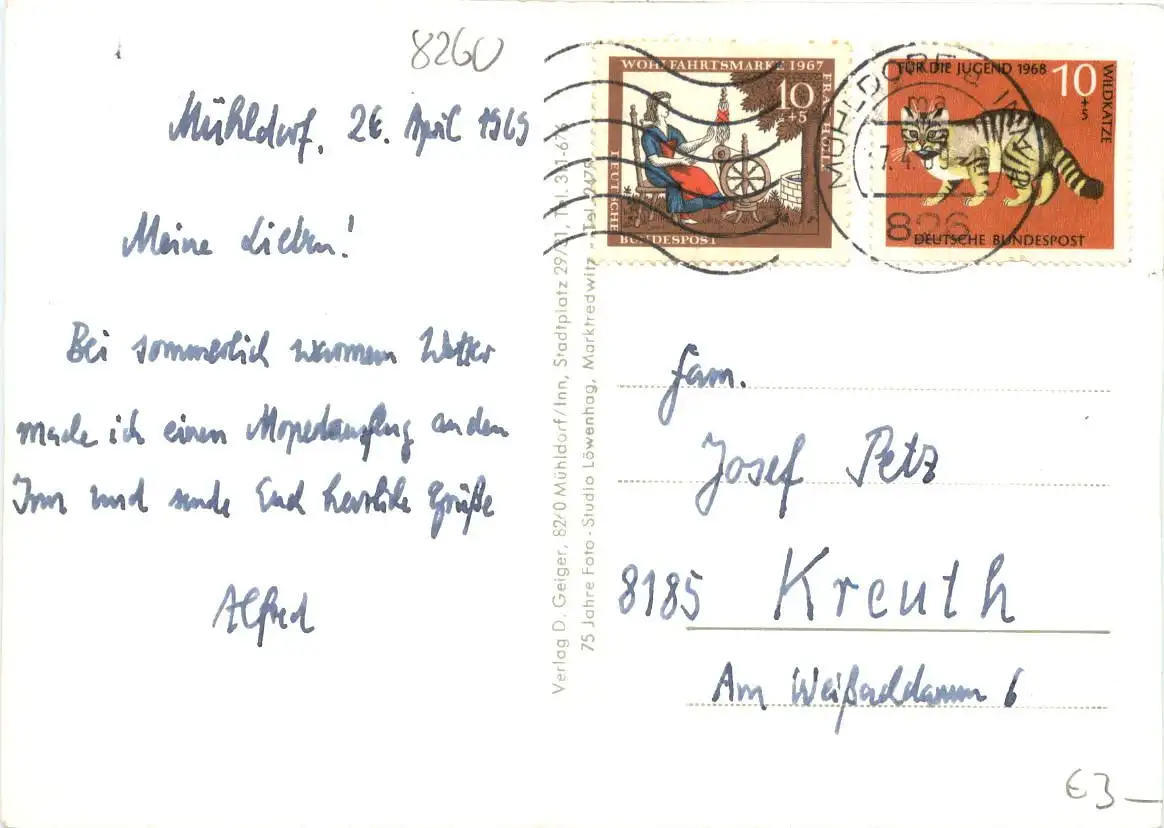 8260
Mühldorf, 26. April 1969
Meine Lieben!
Bei sommerlich warmem Wetter
mache ich einen Mopedausflug an den
Inn und sende Euch herzliche Grüße
Alfred
Verlag D. Geiger, 8260 Mühldorf/Inn, Stadtplatz 29/31, Tel. 311-61
75 Jahre Foto - Studio Löwenhag, Marktredwitz - Tel.
WOHLFAHRTSMARKE 1967
10
+5
FRAU HOLLE
DEUTSCHE
BUNDESPOST
FÜR DIE JUGEND 1968
10
+5
WILDKATZE
DEUTSCHE BUNDESPOST
MÜHLDORF a INN
826
Fam.
Josef Petz
8185 Kreuth
Am Weißachdamm 6
€3_